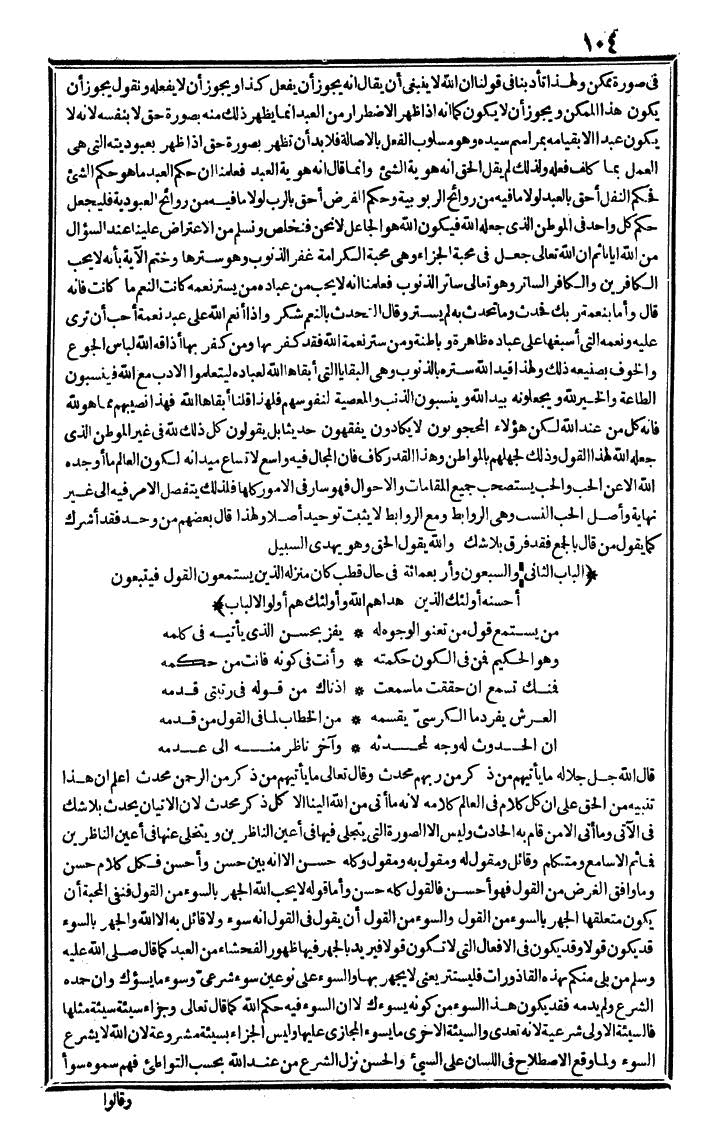 ١٠٤
فى صورة ممكن ولهذا تأدبنا فى قولنا ان الله لا ينبغى أن يقال انه يجوز أن يفعل كذا ويجوز أن لا يفعله ونقول يجوز أن
يكون هذا الممكن ويجوز أن لا يكون كما انه اذا ظهر الاضطرار من العبد انما يظهر ذلك منه بصورة حق لا بنفسه لانه لا
يكون عبدا الا بقيامه بمراسم سيده وهو مسلوب الفعل بالاصالة فلا بد أن تظهر بصورة حق اذا ظهر بعبوديته التى هى
العمل بما كلف فعله ولذلك لم يقل الحق انه هوية الشئ وانما قال انه هوية العبد فعلمنا ان حكم العبد ما هو حكم الشئ
فحكم النفل أحق بالعبد لولا ما فيه من روائح الربوبية وحكم الفرض أحق بالرب لولا ما فيه من روائح العبودية فليجعل
حكم كل واحد فى الموطن الذى جعله الله فيكون الله هو الجاعل لا نحن فنخلص ونسلم من الاعتراض علينا عند السؤال
من الله ايانا ثم ان الله تعالى جعل فى محبة الجزاء وهى محبة الكرامة غفر الذنوب وهو سترها وختم الآية بأنه لا يحب
الكافرين والكافر الساتر وهو تعالى ساتر الذنوب فعلمنا انه لا يحب من عباده من يستر نعمه كانت النعم ما كانت فانه
قال وأما بنعمة ربك فحدث وما تحدث به لم يستر وقال التحدث بالنعم شكر واذا أنعم الله على عبد نعمة أحب أن ترى
عليه ونعمه التى أسبغها على عباده ظاهرة وباطنة ومن ستر نعمة الله فقد كفر بها ومن كفر بها أذاقه الله لباس الجوع
والخوف بصنيعه ذلك ولهذا قيد الله ستره بالذنوب وهى البقايا التى أبقاها الله لعباده ليتعلموا الادب مع الله فينسبون
الطاعة والخير لله ويجعلونه بيد الله وينسبون الذنب والمعصية لنفوسهم فلهذا قلنا أبقاها الله فهذا نصيبهم مما هو لله
فانه كل من عند الله لكن هؤلاء المحجوبون لا يكادون يفقهون حديثا بل يقولون كل ذلك لله فى غير الموطن الذى
جعله الله لهذا القول وذلك لجهلهم بالمواطن وهذا القدر كاف فان المجال فيه واسع لاتساع ميدانه لكون العالم ما أوجده
الله الا عن الحب والحب يستصحب جميع المقامات والاحوال فهو سار فى الامور كلها فلذلك يتفصل الامر فيه الى غير
نهاية وأصل الحب النسب وهى الروابط ومع الروابط لا يثبت توحيد أصلا ولهذا قال بعضهم من وحد فقد أشرك
كما يقول من قال بالجمع فقد فرق بلا شك والله يقول الحق وهو يهدى السبيل
﴿الباب الثانى والسبعون وأربعمائة فى حال قطب كان منزله الذين يستمعون القول فيتبعون
أحسنه أولئك الذين هداهم الله وأولئك هم أولو الالباب﴾
من يستمع قول من تعنو الوجوه له * يفز بحسن الذى يأتيه فى كلمه
وهو الحكيم فمن فى الكون حكمته * وأنت فى كونه فانت من حكمه
فنك تسمع ان حققت ما سمعت * اذناك من قوله فى رتبتى قدمه
العرش يفرد ما الكرسىّ يقسمه * من الخطاب لما فى القول من قدمه
ان الحدوث له وجه لمحدثه * وآخر ناظر منه الى عدمه
قال الله جل جلاله ما يأتيهم من ذكر من ربهم محدث وقال تعالى ما يأتيهم من ذكر من الرحمن محدث اعلم ان هذا
تنبيه من الحق على ان كل كلام فى العالم كلامه لانه ما أتى من الله الينا الا كل ذكر محدث لان الاتيان يحدث بلا شك
فى الآتى وما أتى الا من قام به الحادث وليس الا الصورة التى يتجلى فيها فى أعين الناظرين ويتخلى عنها فى أعين الناظرين
فما ثم الا سامع ومتكلم وقائل ومقول له ومقول به ومقول وكله حسن الا انه بين حسن وأحسن فكل كلام حسن
وما وافق الغرض من القول فهو أحسن فالقول كله حسن وأما قوله لا يحب الله الجهر بالسوء من القول فنفى المحبة أن
يكون متعلقها الجهر بالسوء من القول والسوء من القول أن يقول فى القول انه سوء ولا قائل به الا الله والجهر بالسوء
قد يكون قولا وقد يكون فى الافعال التى لا تكون قولا فيريد بالجهر فيها ظهور الفحشاء من العبد كما قال صلى الله عليه
وسلم من بلى منكم بهذه القاذورات فليستتر يعنى لا يجهر بها والسوء على نوعين سوء شرعىّ وسوء ما يسؤك وان حمده
الشرع ولم يذمه فقد يكون هذا السوء من كونه يسوءك لا ان السوء فيه حكم الله كما قال تعالى وجزاء سيئة سيئة مثلها
فالسيئة الاولى شرعية لانه تعدى والسيئة الاخرى ما يسوء المجازى عليها وليس الجزاء بسيئة مشروعة لان الله لا يشرع
السوء ولما وقع الاصطلاح فى اللسان على السيئ والحسن نزل الشرع من عند الله بحسب التواطئ فهم سموه سوأ
وقالوا